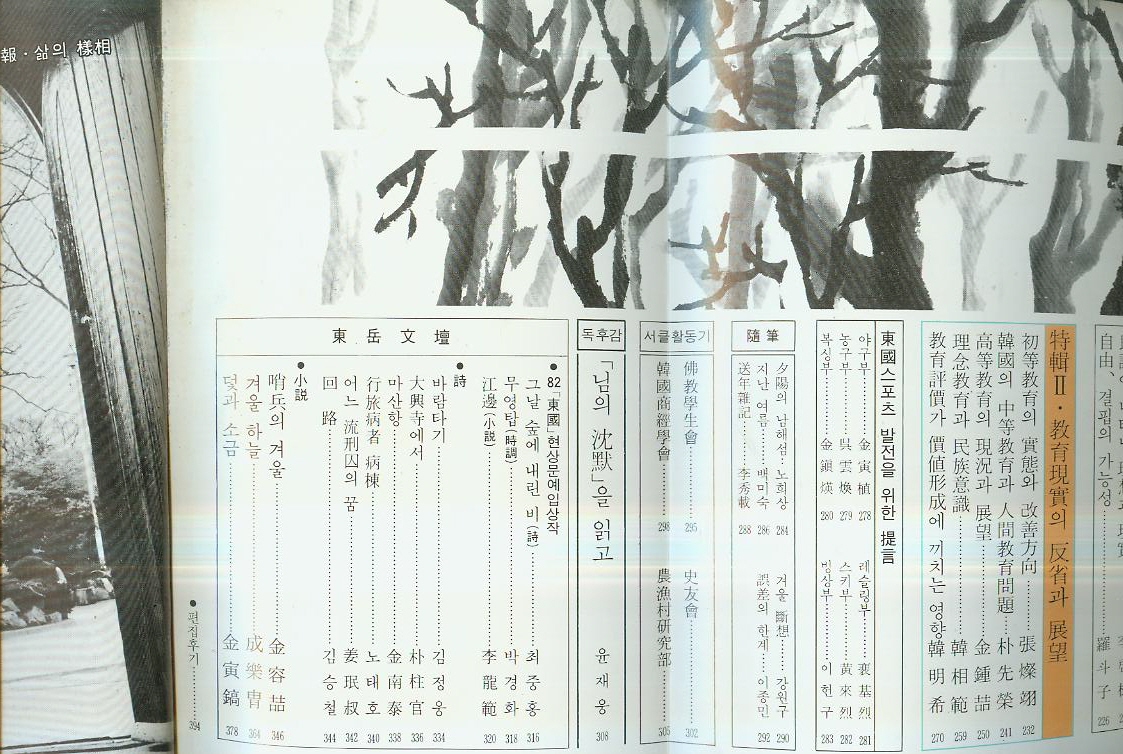 自由、결핍의 가능성 羅斗子 226
特輯Ⅱ・教育現實의 反省과 展望
初等教育의 實態와 改善方向 張燦翊 232
韓國의 中等教育과 人間教育問題 朴先榮 241
高等教育의 現況과 展望 金鍾喆 250
理念教育과 民族意識 韓相範 259
教育評價가 價値形成에 끼치는 영향 韓明希 270
東國스포츠 발전을 위한 提言
야구부 金寅植 278
농구부 吳雲煥 279
복싱부 金鎭煐 280
레슬링부 裵基烈 281
스키부 黃來烈 282
빙상부 이헌구 283
隨筆
夕陽의 남해섬 노희상 284
지난 여름 백미숙 286
送年雜記 李秀載 288
겨울 斷想 강원구 290
誤差의 한계 이종민 292
서클활동기
佛教學生會 295
韓國商經學會 298
史友會 302
農漁村研究部 305
독후감
「님의 沈默」을 읽고 윤재웅 308
東岳文壇
●82「東國」현상문예입상작
그날 숲에 내린 비(詩) 최중홍 316
무영탑(時調) 박경화 318
江邊(小説) 李龍範 320
●詩
바람타기 김정웅 334
大興寺에서 朴柱官 336
마산항 金南泰 338
行旅病者 病棟 노태호 340
어느 流刑囚의 꿈 姜珉叔 342
回路 김승철 344
●小説
哨兵의 겨울 金容喆 346
겨울 하늘 成樂冑 364
덫과 소금 金寅鎬 378
●편집후기 394
報・삶의 樣相